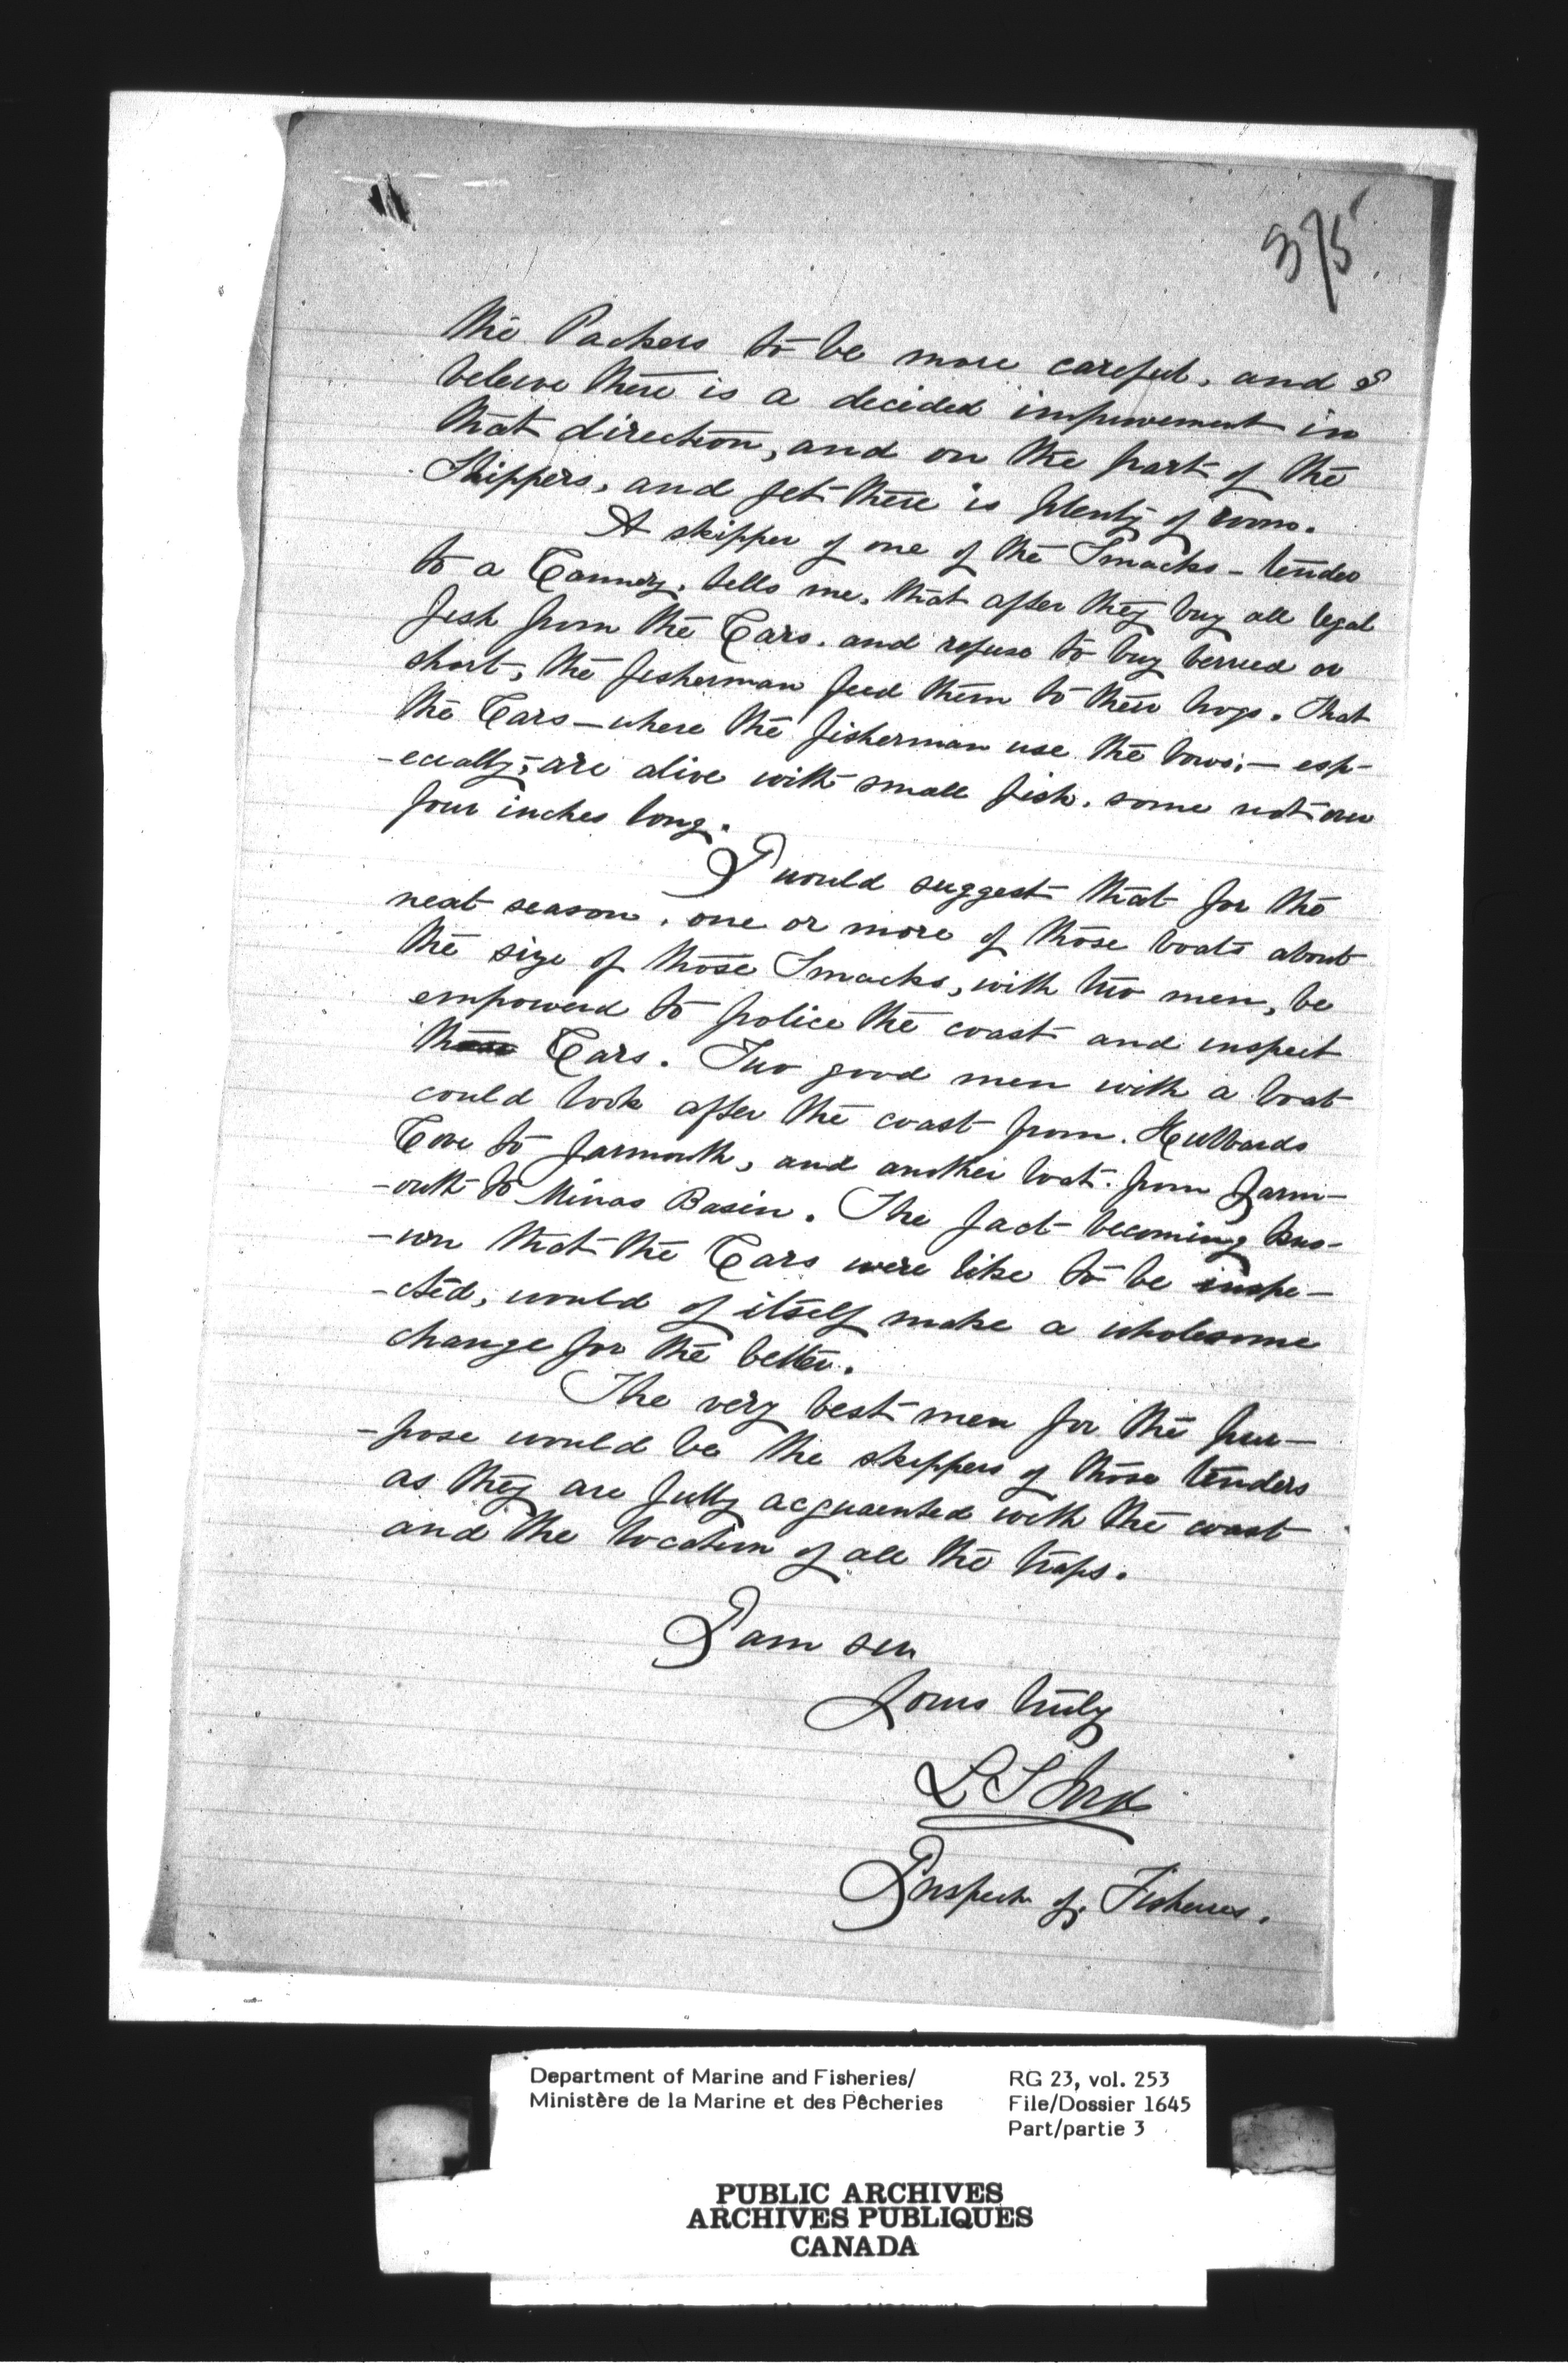 375
the Packers to be more careful, and I
beleive there is a decided improvement in
that direction, and on the part of the
Skippers, and yet there is plenty of room.
A skipper of one of the Smacks - tender
to a Cannery, tells me, that after they buy all legal
fish from the Cars. and refuse to buy berried or
short, the fisherman feed them to their hogs. That
the Cars - where the fisherman use the bows; - esp-
-ecially; are alive with small fish, some not over
four inches long.
I would suggest that for the
next season, one or more of those boats about
the size of those Smacks, with two men, be
empowerd to police the coast and inspect
Cars. Two good men with a boat
could look after the coast from Hubbards
Cove to Yarmouth, and another boat from Yarm-
-outh to Minas Basin. The fact becoming kno-
-wn that the Cars were like to be inspe-
-cted, would of itself make a wholesome
change for the better.
The very best men for the pur-
-pose would be the skippers of those tenders
as they are fully acquaented with the coast
and the location of all the traps.
I am sir
Yours truly
L S Ford
Inspector of Fisheries.
Department of Marine and Fisheries/
Ministère de la Marine et des Pêcheries
RG 23, vol. 253
File/Dossier 1645
Part/partie 3
PUBLIC ARCHIVES
ARCHIVES PUBLIQUES
CANADA